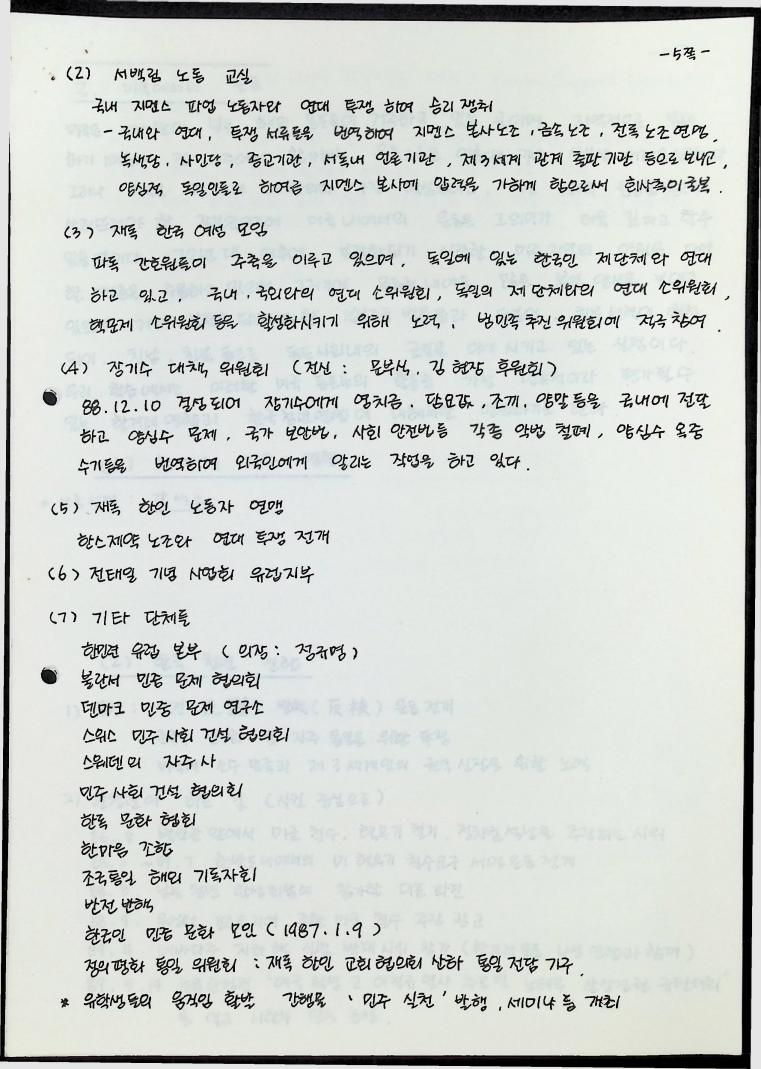 -5쪽-
(2) 서백림 노동 교실
국내 지멘스 파업 노동자와 연대 투쟁 하여 승리 쟁취
- 국내와 연대, 투쟁 서류들을 번역하여 지멘스 본사노조, 금속노조, 전독 노조 연맹,
녹색당, 사민당, 종교기관, 서독내 언론기관, 제3세계 관계 출판기관 등으로 보내고,
양심적 독일인들로 하여금 지멘스 본사에 압력을 가하게 함으로써 회사측이 굴복.
(3) 재독 한국 여성 모임
파독 간호원들이 주축을 이루고 있으며, 독일에 있는 한국인 제단체와 연대
하고 있고, 국내·국외와의 연대 소위원회, 독일의 제단체와의 연대 소위원회,
핵문제 소위원회 등을 활성화시키기 위해 노력, 범민족 추진 위원회에 적극 참여.
(4) 장기수 대책 위원회 (전신 : 문부식, 김현장 후원회)
88.12.10 결성되어 장기수에게 영치금, 담요값, 조끼, 양말 등을 국내에 전달
하고 양심수 문제, 국가 보안법, 사회 안전법등 각종 악법 철폐, 양심수 옥중
수기등을 번역하여 외국인에게 알리는 작업을 하고 있다.
(5) 재독 한인 노동자 연맹
한스제약 노조와 연대 투쟁 전개
(6) 전태일 기념 사업회 유럽지부
(7) 기타 단체들
한민련 유럽 본부 (의장 : 정규명)
불란서 민중 문제 협의회
덴마크 민중 문제 연구소
스위스 민주 사회 건설 협의회
스웨덴의 자주사
민주 사회 건설 협의회
한독 문화 협회
한마음 조합
조국통일 해외 기독자회
반전 반핵
한국인 민중 문화 모임 (1987.1.9)
정의평화 통일 위원회 : 재독 한인 교회협의회 산하 통일 전담 기구.
* 유학생들의 움직임 활발 간행물 '민주 실천' 발행, 세미나 등 개최